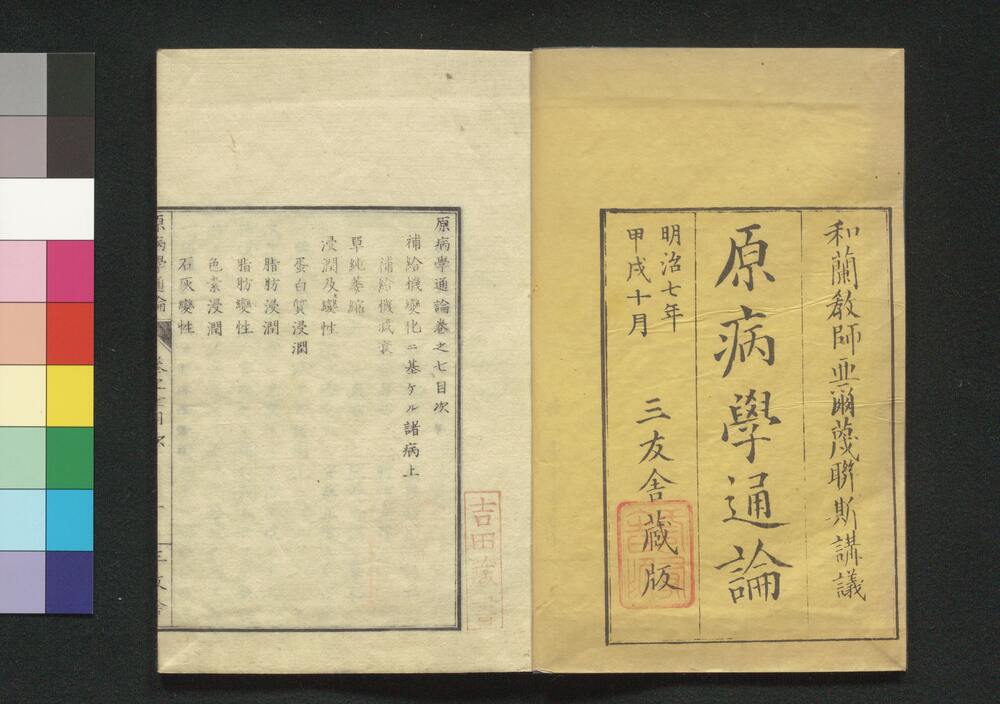 和蘭教師亜爾蔑聯斯講議
原病學通論
明治七年
甲戌十月
三友舍蔵版
原病學通論巻之七目次
補給機變化ニ基ケル諸病上
補給機減衰
單純萎縮
浸潤及變性
蛋白質浸潤
脂肪浸潤
脂肪變性
色素浸潤
石灰變性
原病學通論 巻之七目次 一 三友舍
吉田蔵書